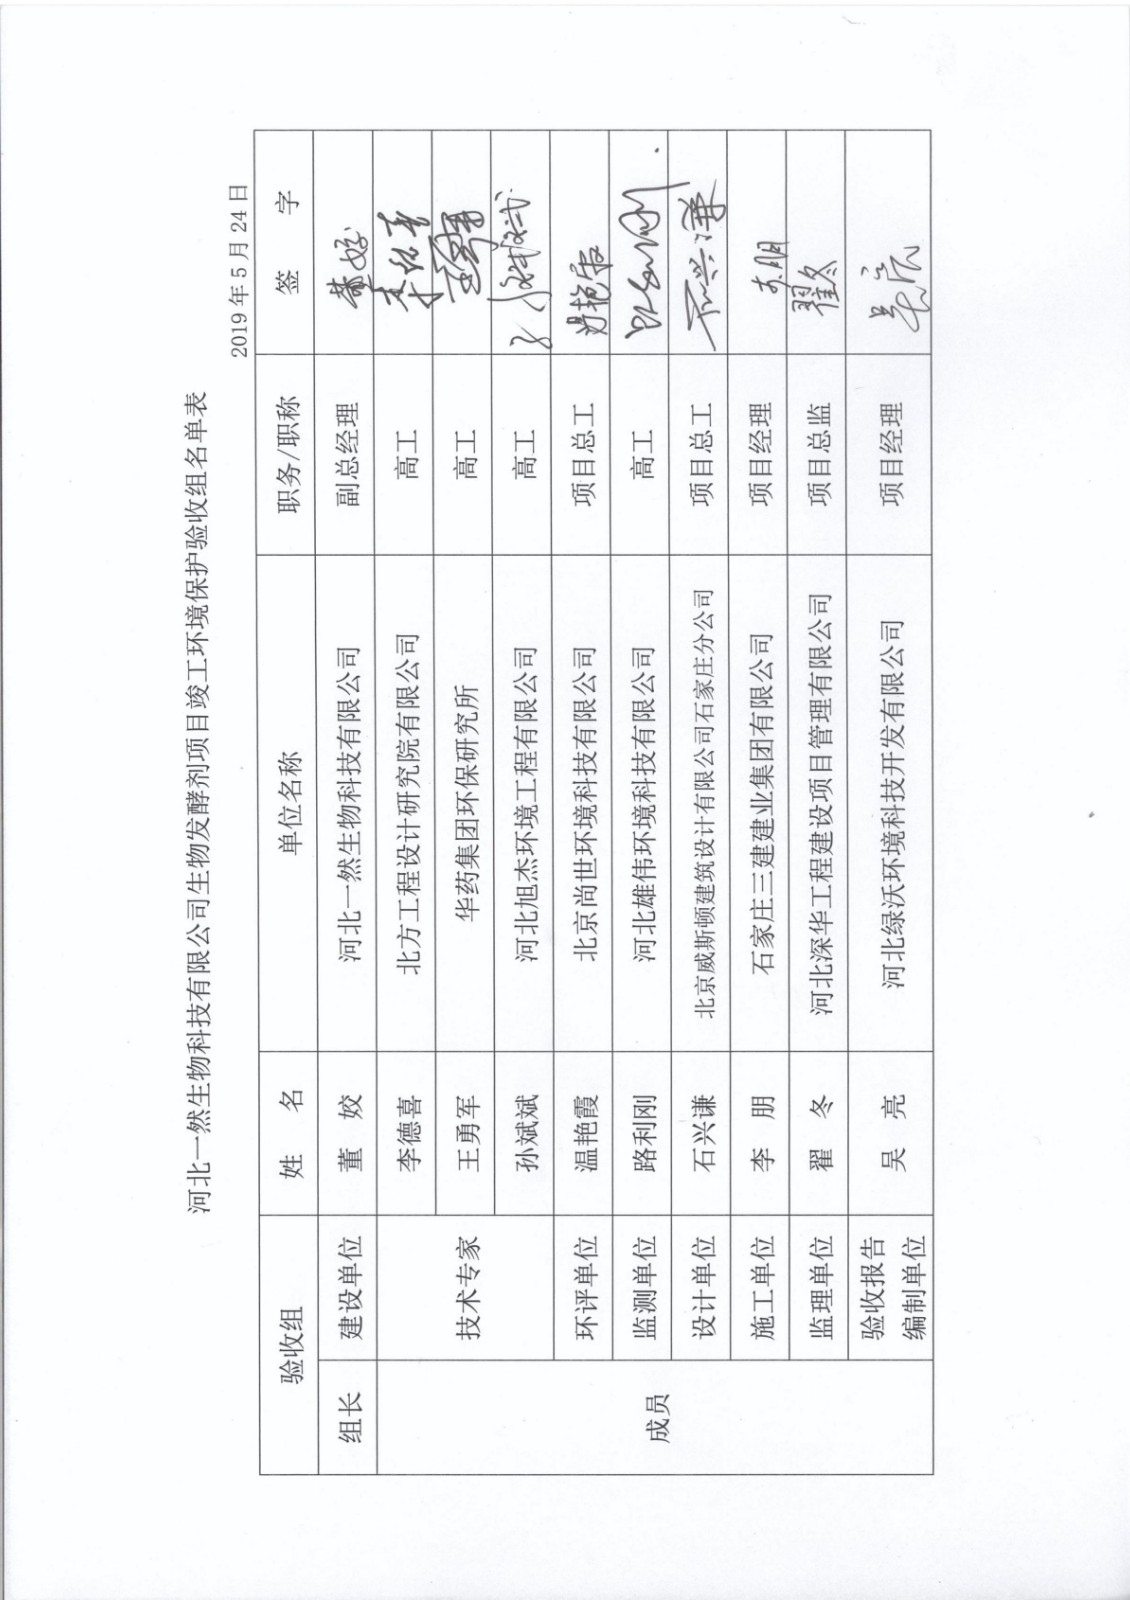 河北一然生物科技有限公司生物发酵剂项目竣工环境保护验收组名单表
2019年5月24日
验收组 姓 名 单位名称 职务/职称 签 字
组长 建设单位 董 姣 河北一然生物科技有限公司 副总经理 董姣
成员 技术专家 李德喜 北方工程设计研究院有限公司 高工
王勇军 华药集团环保研究所 高工
孙斌斌 河北旭杰环境工程有限公司 高工 孙斌斌
环评单位 温艳霞 北京尚世环境科技有限公司 项目总工 温艳霞
监测单位 路利刚 河北雄伟环境科技有限公司 高工 路利刚
设计单位 石兴谦 北京威斯顿建筑设计有限公司石家庄分公司 项目总工 石兴谦
施工单位 李 朋 石家庄三建建业集团有限公司 项目经理 李朋
监理单位 翟 冬 河北深华工程建设项目管理有限公司 项目总监 翟冬
验收报告
编制单位 吴 亮 河北绿沃环境科技开发有限公司 项目经理